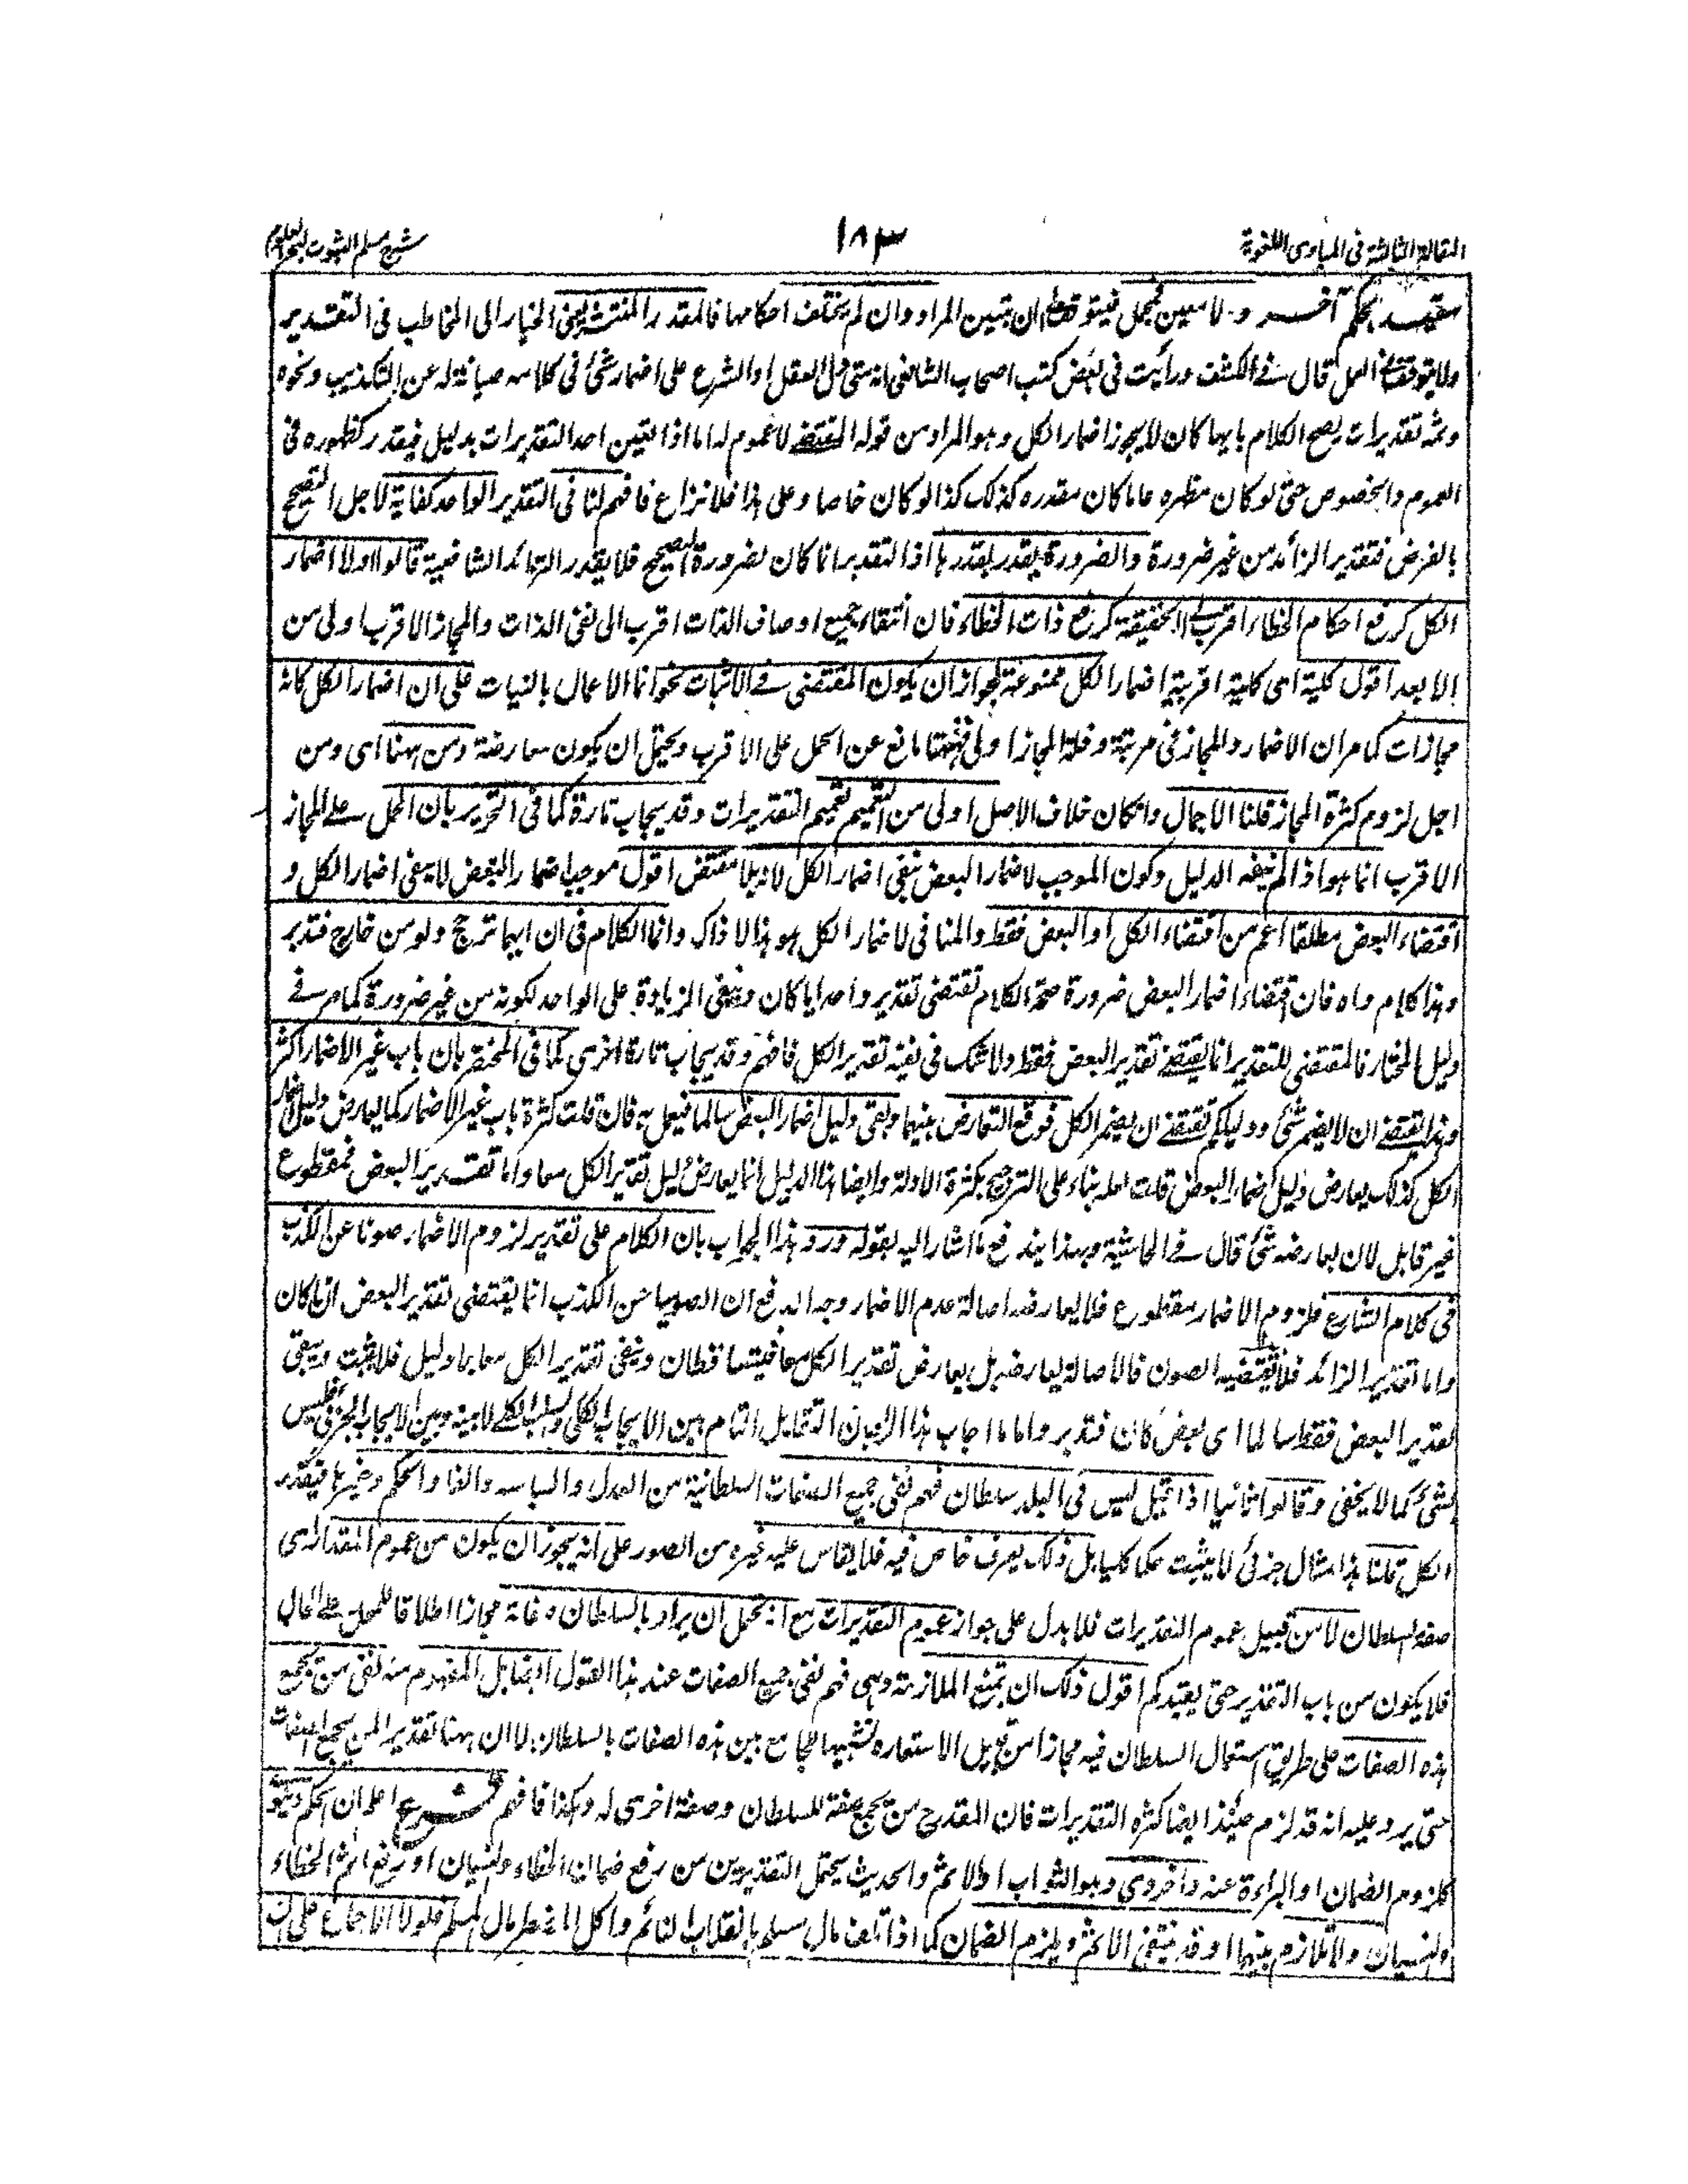 المقالة الثالثة فى المبادى اللغوية
١٨٣
شرح مسلم الثبوت لبحر العلوم
مقيد بحكم آخر و لا معين فمجمل فيتوقف الى ان يتبين المراد وان لم يختلف احكامها فالمقدر المنتشر يعنى الخيار الى المخاطب فى التقدير
ولا يتوقف فى العمل قال فى الكشف ورأيت فى بعض كتب اصحاب الشافعى انه متى دل العقل او الشرع على اضمار شئ فى كلامه صيانة له عن التكذيب ونحوه
وثمه تقديرات يصح الكلام بايها كان لا يجوز اضمار الكل وهو المراد من قوله المقتضى لا عموم له اما اذا تعين احد التقديرات بدليل فيقدر كظهوره فى
العموم والخصوص حتى لو كان مظهره عاما كان مقدره كذلك كذا لو كان خاصا وعلى هذا فلا نزاع فافهم لنا فى التقدير الواحد كفاية لاجل التصحيح
بالفرض فتقدير الزائد من غير ضرورة والضرورة يقدر بقدرها اذ التقدير انما كان لضرورة التصحيح فلا يقدر الزائد الشافعية قالوا اولا اضمار
الكل كرفع احكام الخطاء اقرب الى الحقيقة كرفع ذات الخطاء فان انتفاء جميع اوصاف الذات اقرب الى نفى الذات والمجاز الاقرب اولى من
الابعد اقول كلية اى كلية اقربية اضمار الكل ممنوعة لجواز ان يكون المقتضى فى الاثبات نحو انما الاعمال بالنيات على ان اضمار الكل كانه
مجازات كما مر ان الاضمار والمجاز فى مرتبة وقلة المجاز اولى فههنا مانع عن الحمل على الاقرب ويحتمل ان يكون معارضة ومن ههنا اى ومن
اجل لزوم كثرة المجاز قلنا الاجمال وانكان خلاف الاصل اولى من التعميم تعميم التقديرات وقد يجاب تارة كما فى التحرير بان الحمل على المجاز
الاقرب انما هو اذا لم ينفه الدليل وكون الموجب لاضمار البعض ينفى اضمار الكل لانه بلا مقتض اقول موجب اضمار البعض لا ينفى اضمار الكل و
اقتضاء البعض مطلقا اعم من اقتضاء الكل او البعض فقط والمنافى لاضمار الكل هو هذا لا ذاك وانما الكلام فى ان ايهما ترجح ولو من خارج فتدبر
وهذا كلام واه فان اقتضاء اضمار البعض ضرورة صحة الكلام تقتضى تقدير واحد ايا كان وينفى الزيادة على الواحد لكونه من غير ضرورة كما مر فى
دليل المختار فالمقتضى للتقدير انما يقتضى تقدير البعض فقط ولا شك فى نفيه تقدير الكل فافهم وقد يجاب تارة اخرى كما فى المختصر بان باب غير الاضمار اكثر
وهذا يقتضى ان لا يضمر شئ ودليلكم تقتضى ان يضمر الكل فوقع التعارض بينهما وبقى دليل اضمار البعض سالما فيعمل به فان قلت كثرة باب غير الاضمار كما يعارض دليل اضمار
الكل كذلك يعارض دليل اضمار البعض قلت لعله بناء على الترجيح بكثرة الادلة وايضا هذا الدليل انما يعارض دليل تقدير الكل معا واما تقدير البعض فمقطوع
غير قابل لان يعارضه شئ قال فى الحاشية وبهذا يندفع ما اشار اليه بقوله ورد هذا الجواب بان الكلام على تقدير لزوم الاضمار صونا عن الكذب
فى كلام الشارع فلزوم الاضمار مقطوع فلا يعارضه اصالة عدم الاضمار وجه الدفع ان الصون عن الكذب انما يقتضى تقدير البعض ايا كان
واما تقدير الزائد فلا يقتضيه الصون فالاصالة يعارضه بل يعارض تقدير الكل معا فيتساقطان وينفى تقدير الكل معا بلا دليل فلا يثبت ويبقى
تقدير البعض فقط سالما اى بعض كان فتدبر واما ما اجاب هذا الرد بان التقابل التام بين الايجاب الكلى والسلب الكلى لا بينه وبين الايجاب الجزئى فليس
بشئ كما لا يخفى وقالوا ثانيا اذا قيل ليس فى البلد سلطان فهم نفى جميع الصفات السلطانية من العدل والسياسه والنفاذ والحكم وغيرها فيقدر
الكل قلنا هذا مثال جزئى لا يثبت حكما كليا بل ذلك يعرف خاص فيه فلا يقاس عليه غيره من الصور على انه يجوز ان يكون من عموم المقدر اى
صفة السلطان لا من قبيل عموم التقديرات فلا يدل على جواز عموم التقديرات مع انه يحتمل ان يراد بالسلطان صفاته مجازا اطلاقا للمحل على الحال
فلا يكون من باب التقدير حتى يفيدكم اقول ذلك ان تمنع الملازمة وهى فهم نفى جميع الصفات عند هذا القول ايضا بل المفهوم منه نفى من يجمع
هذه الصفات على طريق استعمال السلطان فيه مجازا من قبيل الاستعارة تشبيها لجامع بين هذه الصفات بالسلطان لا ان ههنا تقدير المن يجمع الصفات
حتى يرد عليه انه قد لزم حينئذ ايضا كثرة التقديرات فان المقدرح من يجمع صفة للسلطان وصفة اخرى له وهكذا فافهم فرع اعلم ان الحكم دنيوى
كلزوم الضمان او البراءة عنه واخروى وهو الثواب او الاثم والحديث يحتمل التقديرين من رفع ضمان الخطاء والنسيان او رفع اثم الخطاء
والنسيان ولا تلازم بينهما اذ قد ينتفى الاثم ويلزم الضمان كما اذا تلف مال مسلم بانقلاب النائم واكل المضطر مال المسلم فلولا الاجماع على ان